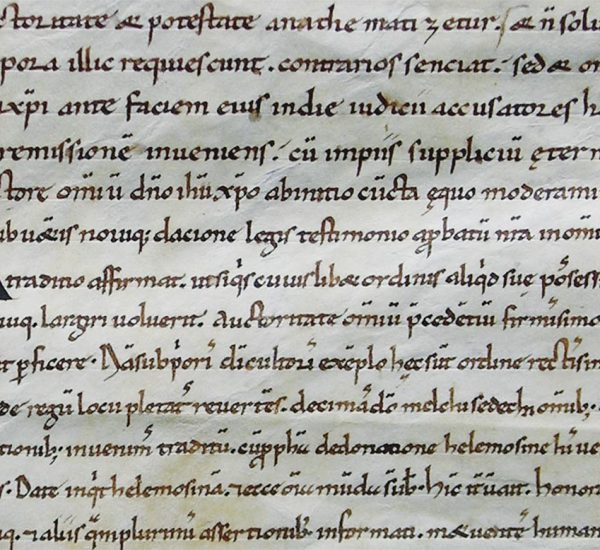 ctoritate & potestate anathematizetur. & n̄ solu
pora illic requiescunt. contrarios senciat. sed & om
ixp̄i ante faciem eius in die iudicii accusatores h
remissionē inveniens. cū impiis suppliciū ętern
ctore om̄iū dn̄o ihūxp̄o ab initio cūcta ęquo moderami
ib novięq; dacione legis testimonio ꝓbatū nr̄a in om̄i
traditio affirmat. ut siq̄s cuiuslib& ordinis aliq̄d suę
iuq. largiri voluerit. Auctoritate om̄iū p̄cedētiū firmissimo
t ꝑficere. Nā sub p̄ori dī cultorū exēplo hęc sūt ordine rectissim
de regū locupletat reverte̅s. decimā dō melchisedech om̄ib;
tionib; invenim traditū. cū ꝓph̄ā de donatione helemosine
s. Date inq̄t helemosinā. & ecce om̄ia mūda sūt. hic honor
uq. & aliis q̄mplurimū assertionib; informati. human